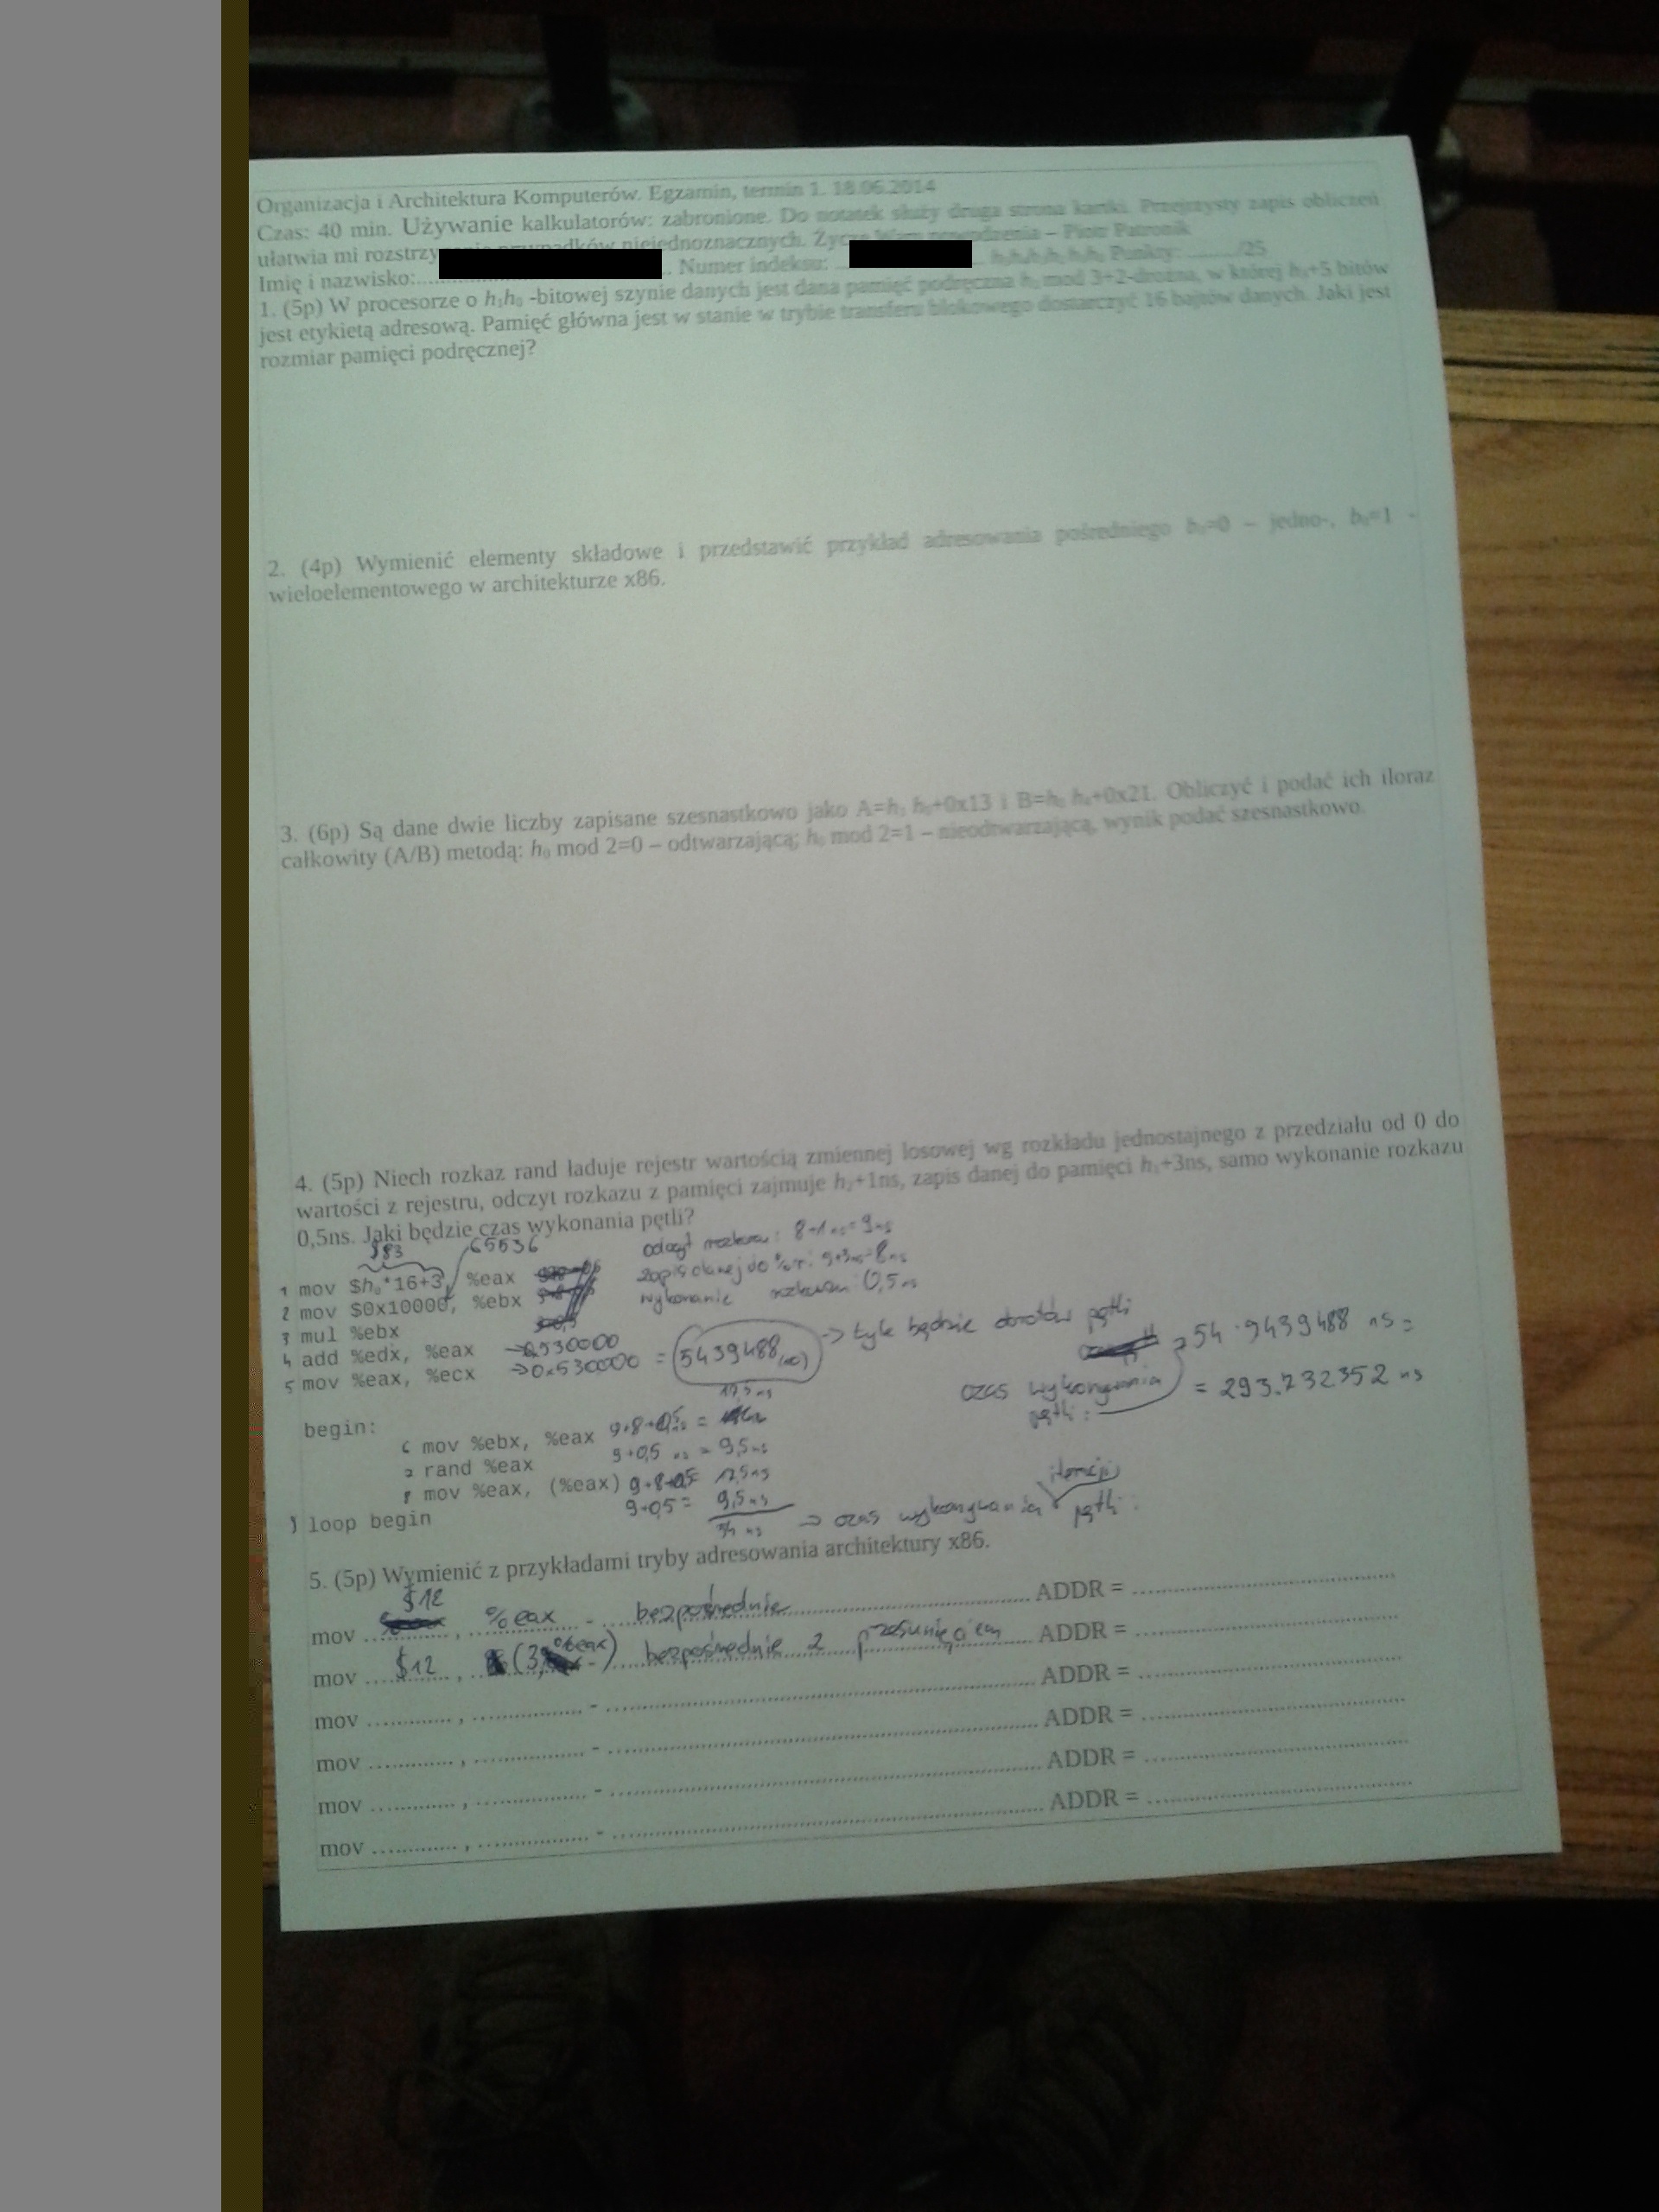 Organizacja i Architektura Komputerów. Egzamin, termin 1. 18.06.2014
Czas: 40 min. Używanie kalkulatorów: zabronione. Do notatek służy druga strona kartki. Przejrzysty zapis obliczeń
ułatwia mi rozstrzy przypadków niejednoznacznych. Życzę Wam powodzenia – Piotr Patronik
Imię i nazwisko: Numer indeksu: Punkty: ......../25
1. (5p) W procesorze o h₁h₀ -bitowej szynie danych jest dana pamięć podręczna mod 3+2-drożna, w której +5 bitów
jest etykietą adresową. Pamięć główna jest w stanie w trybie transferu blokowego dostarczyć 16 bajtów danych. Jaki jest
rozmiar pamięci podręcznej?
2. (4p) Wymienić elementy składowe i przedstawić przykład adresowania pośredniego =0 – jedno-, =1 -
wieloelementowego w architekturze x86.
3. (6p) Są dane dwie liczby zapisane szesnastkowo jako +0x13 i +0x21. Obliczyć i podać ich iloraz
całkowity (A/B) metodą: h₀ mod 2=0 – odtwarzającą; h₀ mod 2=1 – nieodtwarzającą, wynik podać szesnastkowo.
4. (5p) Niech rozkaz rand ładuje rejestr wartością zmiennej losowej wg rozkładu jednostajnego z przedziału od 0 do
wartości z rejestru, odczyt rozkazu z pamięci zajmuje +1ns, zapis danej do pamięci +3ns, samo wykonanie rozkazu
0,5ns. Jaki będzie czas wykonania pętli?
83 65536 odczyt rozkazu: 8+1 ns = 9ns
1 mov $h₀*16+3, %eax zapis danej do : 5+3ns=8ns
2 mov $0x10000, %ebx wykonanie rozkazu: 0,5ns
3 mul %ebx
4 add %edx, %eax → 0x530000
5 mov %eax, %ecx → 0x530000 = 5439488 → tyle będzie obrotów pętli
54 · 5439488 ns =
czas wykonywania pętli: = 293.732352 ns
begin:
6 mov %ebx, %eax 9+8+0,5 = 17,5 ns
rand %eax 9+0,5 ns = 9,5ns
8 mov %eax, (%eax) 9+8+0,5 17,5ns
loop begin 9+0,5= 9,5ns
54 ns → czas wykonywania iteracji pętli.
5. (5p) Wymienić z przykładami tryby adresowania architektury x86.
mov $12, %eax - bezpośrednie ADDR =
mov $12, (3,%eax) - bezpośrednie z przesunięciem ADDR =
mov ............, ................ - ................ ADDR = ................
mov ............, ................ - ................ ADDR = ................
mov ............, ................ - ................ ADDR = ................
mov ............, ................ - ................ ADDR = ................